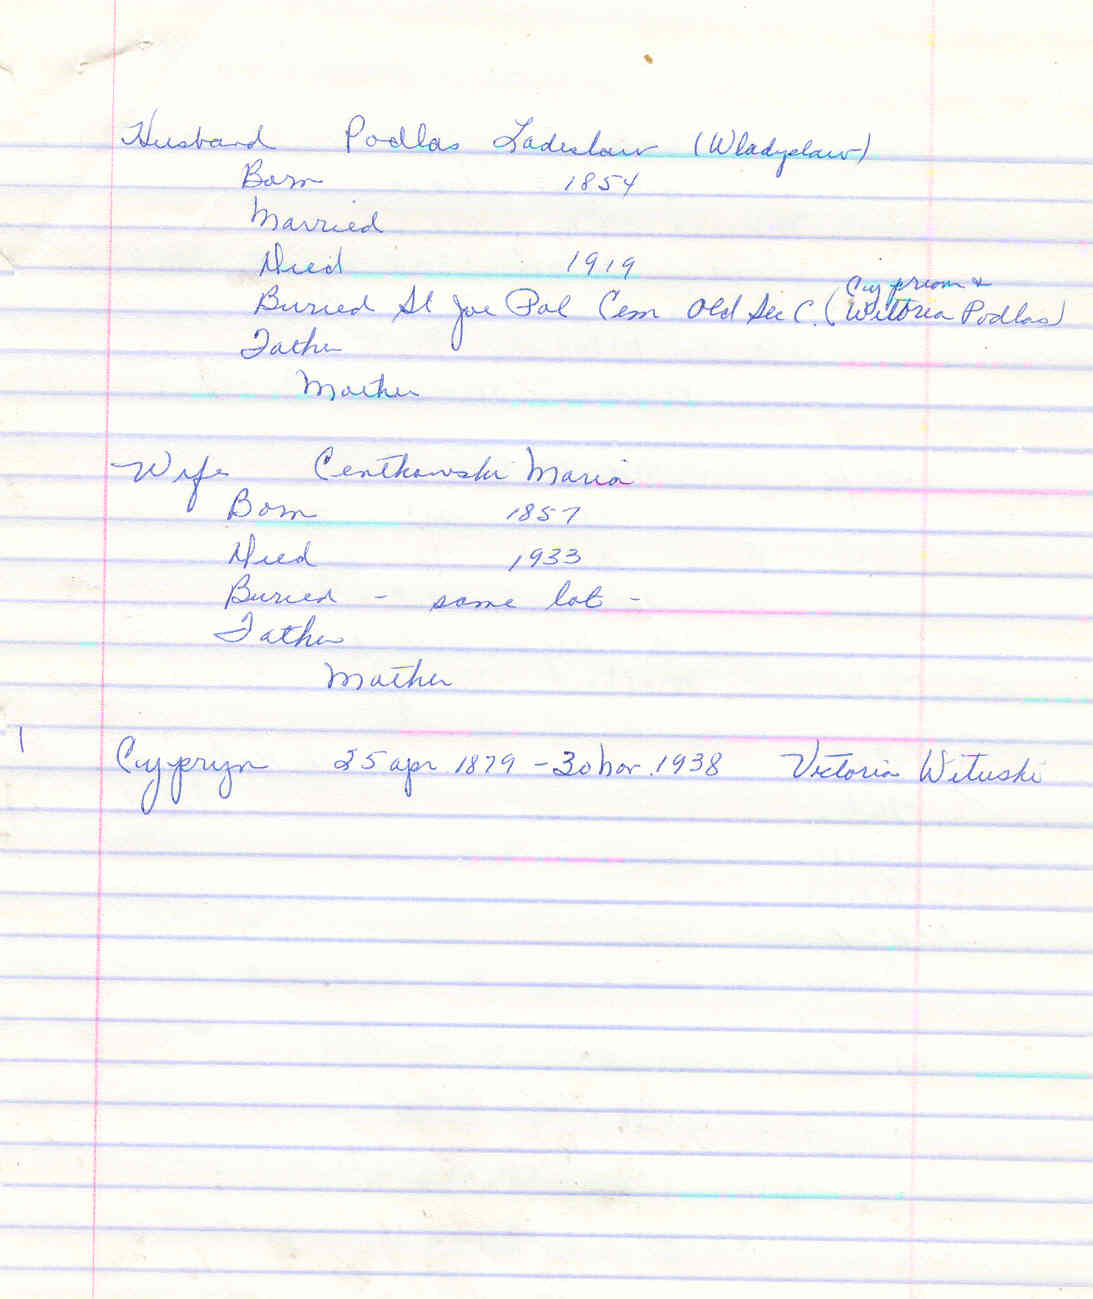 Husband Podlas Ladislaw (Wladyslaw)
Born 1854
Married
Died 1919
Cypriam &
Buried St Joe Pol Cem Old Sec C. (Wiktoria Podlas)
Father
Mother
Wife Centkowski Maria
Born 1857
Died 1933
Buried - same lot -
Father
Mother
1 Cypryn 25 apr 1879 - 30 nov. 1938 Victoria Wituski